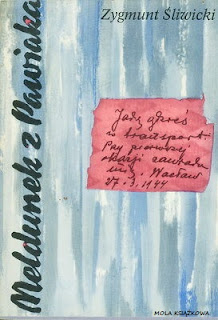 Zygmunt Śliwicki
Meldunek z Pawiaka
Jadę
w transport.
Przy pierwszej
okazji
Wacław
27.3.1944
MOLA KSIĄŻKOWA